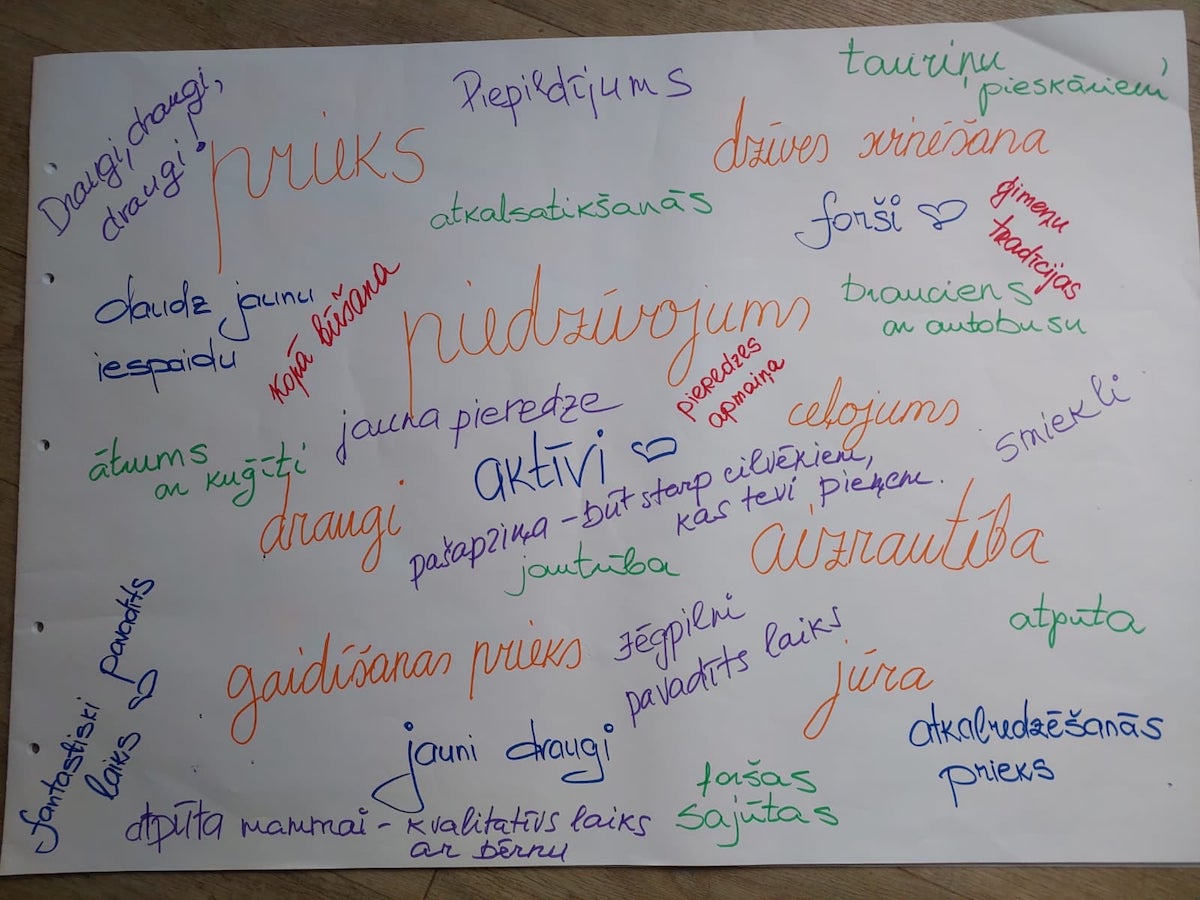 Draugi, draugi,
draugi!
Piepildījums
tauriņu
pieskārieni
prieks
dzīves svinēšana
atkalsatikšanās
forši ♡
ģimeņu
tradīcijas
daudz jaunu
iespaidu
kopā būšana
piedzīvojums
brauciens
ar autobusu
pieredzes
apmaiņa
jauna pieredze
ceļojums
smiekli
ātrums
ar kuģīti
aktīvi ♡
draugi
pašapziņa - būt starp cilvēkiem,
kas tevi pieņem.
jautrība
aizrautība
fantastiski pavadīts
laiks ♡
gaidīšanas prieks
zēgpilni
pavadīts laiks
atpūta
jūra
jauni draugi
atkalredzēšanās
prieks
foršas
sajūtas
atpūta mammai - kvalitatīvs laiks
ar bērnu